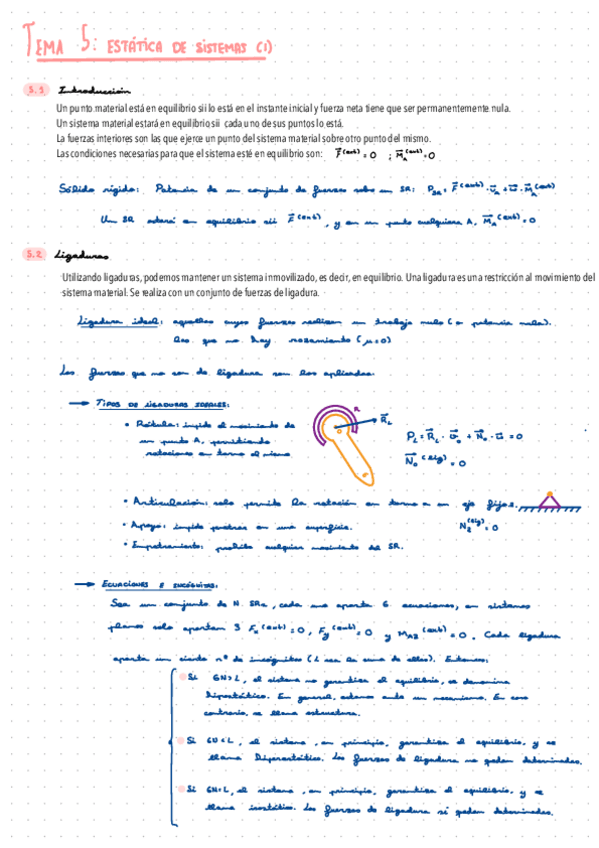 TEMA 5: ESTÁTICA DE SISTEMAS (I)
5.1 Introducción
Un punto material está en equilibrio sii lo está en el instante inicial y fuerza neta tiene que ser permanentemente nula.
Un sistema material estará en equilibrio sii cada uno de sus puntos lo está.
La fuerzas interiores son las que ejerce un punto del sistema material sobre otro punto del mismo.
Las condiciones necesarias para que el sistema esté en equilibrio son: F⃗^(ext) = 0 ; M⃗_A^(ext) = 0
Sólido rígido: Potencia de un conjunto de fuerzas sobre un SR: P_SR = F⃗^(ext) · v⃗_A + ω⃗ · M⃗_A^(ext)
Un SR estará en equilibrio sii F⃗^(ext), y en un punto cualquiera A, M⃗_A^(ext) = 0
5.2 Ligaduras
Utilizando ligaduras, podemos mantener un sistema inmovilizado, es decir, en equilibrio. Una ligadura es una restricción al movimiento del
sistema material. Se realiza con un conjunto de fuerzas de ligadura.
Ligadura ideal: aquellas cuyas fuerzas realizan un trabajo nulo (o potencia nula).
Las que no hay rozamiento (μ=0)
Las fuerzas que no son de ligadura son las aplicadas.
→ TIPOS DE LIGADURAS IDEALES:
• Rótula: impide el movimiento de
un punto A, permitiendo
rotaciones en torno al mismo
R⃗_L
P_L = R⃗_L · v⃗_o + N⃗_o · ω⃗ = 0
N⃗_o^(lig) = 0
• Articulación: solo permite la rotación en torno a un eje fijo.
N_z^(lig) = 0
• Apoyo: impide penetrar en una superficie.
• Empotramiento: prohíbe cualquier movimiento del SR.
→ ECUACIONES E INCÓGNITAS:
Sea un conjunto de N SRs, cada uno aporta 6 ecuaciones, en sistemas
planos solo aportan 3 F_x^(ext) = 0, F_y^(ext) = 0 y M_Az^(ext) = 0. Cada ligadura
aporta un cierto nº de incógnitas (L sea la suma de ellos). Entonces:
Si 6N>L, el sistema no garantiza el equilibrio, se denomina
hipostático. En general, estamos ante un mecanismo. En caso
contrario, se llama estructura.
Si 6N<L, el sistema, en principio, garantiza el equilibrio, y se
llama hiperestático. Las fuerzas de ligadura no quedan determinadas.
Si 6N=L, el sistema, en principio, garantiza el equilibrio, y se
llama isostático. Las fuerzas de ligadura sí quedan determinadas.